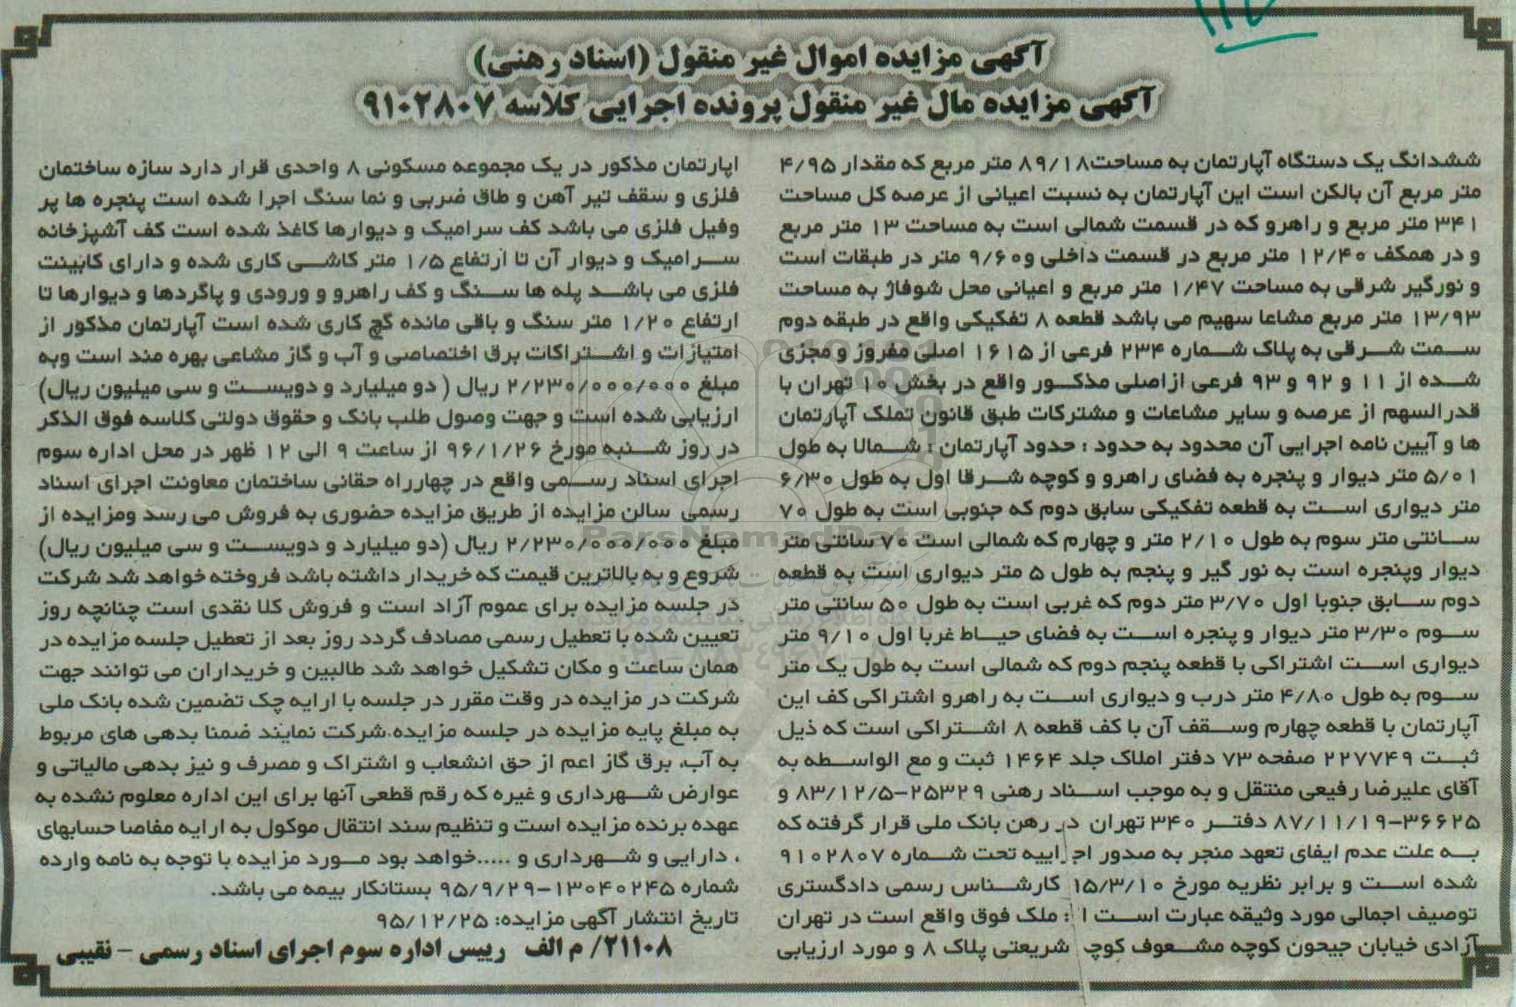 آگهی مزایده اموال غیر منقول (اسناد رهنی)
آگهی مزایده مال غیر منقول پرونده اجرایی کلاسه ۹۱۰۲۸۰۷
ششدانگ یک دستگاه آپارتمان به مساحت۸۹/۱۸ متر مربع که مقدار ۴/۹۵
متر مربع آن بالکن است این آپارتمان به نسبت اعیانی از عرصه کل مساحت
۳۴۱ متر مربع و راهرو که در قسمت شمالی است به مساحت ۱۳ متر مربع
و در همکف ۱۲/۴۰ متر مربع در قسمت داخلی و۹/۶۰ متر در طبقات است
و نورگیر شرقی به مساحت ۱/۴۷ متر مربع و اعیانی محل شوفاژ به مساحت
۱۳/۹۳ متر مربع مشاعا سهیم می باشد قطعه ۸ تفکیکی واقع در طبقه دوم
سمت شرقی به پلاک شماره ۲۳۴ فرعی از ۱۶۱۵ اصلی مفروز و مجزی
شده از ۱۱ و ۹۲ و ۹۳ فرعی ازاصلی مذکور واقع در بخش ۱۰ تهران با
قدرالسهم از عرصه و سایر مشاعات و مشترکات طبق قانون تملک آپارتمان
ها و آیین نامه اجرایی آن محدود به حدود : حدود آپارتمان : شمالا به طول
۵/۰۱ متر دیوار و پنجره به فضای راهرو و کوچه شرقا اول به طول ۶/۳۰
متر دیواری است به قطعه تفکیکی سابق دوم که جنوبی است به طول ۷۰
سانتی متر سوم به طول ۲/۱۰ متر و چهارم که شمالی است ۷۰ سانتی متر
دیوار وپنجره است به نور گیر و پنجم به طول ۵ متر دیواری است به قطعه
دوم سابق جنوبا اول ۳/۷۰ متر دوم که غربی است به طول ۵۰ سانتی متر
سوم ۳/۳۰ متر دیوار و پنجره است به فضای حیاط غربا اول ۹/۱۰ متر
دیواری است اشتراکی با قطعه پنجم دوم که شمالی است به طول یک متر
سوم به طول ۴/۸۰ متر درب و دیواری است به راهرو اشتراکی کف این
آپارتمان با قطعه چهارم وسقف آن با کف قطعه ۸ اشتراکی است که ذیل
ثبت ۲۲۷۷۴۹ صفحه ۷۳ دفتر املاک جلد ۱۴۶۴ ثبت و مع الواسطه به
آقای علیرضا رفیعی منتقل و به موجب اسناد رهنی ۲۵۳۲۹-۸۳/۱۲/۵ و
۳۶۶۲۵-۸۷/۱۱/۱۹ دفتر ۳۴۰ تهران در رهن بانک ملی قرار گرفته که
به علت عدم ایفای تعهد منجر به صدور اجراییه تحت شماره ۹۱۰۲۸۰۷
شده است و برابر نظریه مورخ ۱۵/۳/۱۰ کارشناس رسمی دادگستری
توصیف اجمالی مورد وثیقه عبارت است از: ملک فوق واقع است در تهران
آزادی خیابان جیحون کوچه مشعوف کوچه شریعتی پلاک ۸ و مورد ارزیابی
اپارتمان مذکور در یک مجموعه مسکونی ۸ واحدی قرار دارد سازه ساختمان
فلزی و سقف تیر آهن و طاق ضربی و نما سنگ اجرا شده است پنجره ها پر
وفیل فلزی می باشد کف سرامیک و دیوارها کاغذ شده است کف آشپزخانه
سرامیک و دیوار آن تا ارتفاع ۱/۵ متر کاشی کاری شده و دارای کابینت
فلزی می باشد پله ها سنگ و کف راهرو و ورودی و پاگردها و دیوارها تا
ارتفاع ۱/۲۰ متر سنگ و باقی مانده گچ کاری شده است آپارتمان مذکور از
امتیازات و اشتراکات برق اختصاصی و آب و گاز مشاعی بهره مند است وبه
مبلغ ۲/۲۳۰/۰۰۰/۰۰۰ ریال ( دو میلیارد و دویست و سی میلیون ریال)
ارزیابی شده است و جهت وصول طلب بانک و حقوق دولتی کلاسه فوق الذکر
در روز شنبه مورخ ۹۶/۱/۲۶ از ساعت ۹ الی ۱۲ ظهر در محل اداره سوم
اجرای اسناد رسمی واقع در چهارراه حقانی ساختمان معاونت اجرای اسناد
رسمی سالن مزایده از طریق مزایده حضوری به فروش می رسد ومزایده از
مبلغ ۲/۲۳۰/۰۰۰/۰۰۰ ریال (دو میلیارد و دویست و سی میلیون ریال)
شروع و به بالاترین قیمت که خریدار داشته باشد فروخته خواهد شد شرکت
در جلسه مزایده برای عموم آزاد است و فروش کلا نقدی است چنانچه روز
تعیین شده با تعطیل رسمی مصادف گردد روز بعد از تعطیل جلسه مزایده در
همان ساعت و مکان تشکیل خواهد شد طالبین و خریداران می توانند جهت
شرکت در مزایده در وقت مقرر در جلسه با ارایه چک تضمین شده بانک ملی
به مبلغ پایه مزایده در جلسه مزایده.شرکت نمایند ضمنا بدهی های مربوط
به آب، برق گاز اعم از حق انشعاب و اشتراک و مصرف و نیز بدهی مالیاتی و
عوارض شهرداری و غیره که رقم قطعی آنها برای این اداره معلوم نشده به
عهده برنده مزایده است و تنظیم سند انتقال موکول به ارایه مفاصا حسابهای
، دارایی و شهرداری و .....خواهد بود مورد مزایده با توجه به نامه وارده
شماره ۱۳۰۴۰۲۴۵-۹۵/۹/۲۹ بستانکار بیمه می باشد.
تاریخ انتشار آگهی مزایده: ۹۵/۱۲/۲۵
۲۱۱۰۸/ م الف رییس اداره سوم اجرای اسناد رسمی - نقیبی
ParsNamadData